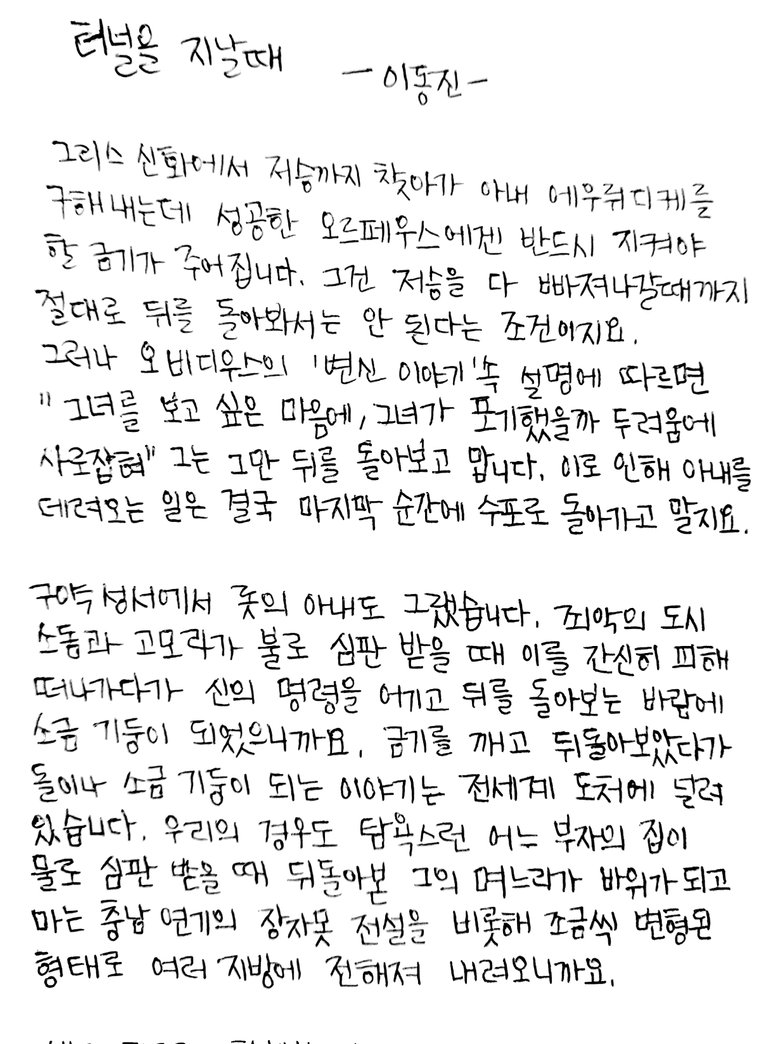 터널을 지날때
- 이동진 -
그리스 신화에서 저승까지 찾아가 아내 에우뤼디케를
구해내는데 성공한 오르페우스에겐 반드시 지켜야
할 금기가 주어집니다. 그건 저승을 다 빠져나갈때까지
절대로 뒤를 돌아봐서는 안 된다는 조건이지요.
그러나 오비디우스의 '변신 이야기'속 설명에 따르면
"그녀를 보고 싶은 마음에, 그녀가 포기했을까 두려움에
사로잡혀" 그는 그만 뒤를 돌아보고 맙니다. 이로 인해 아내를
데려오는 일은 결국 마지막 순간에 수포로 돌아가고 말지요.
구약성서에서 롯의 아내도 그랬습니다. 죄악의 도시
소돔과 고모라가 불로 심판 받을 때 이를 간신히 피해
떠나가다가 신의 명령을 어기고 뒤를 돌아보는 바람에
소금 기둥이 되었으니까요. 금기를 깨고 뒤돌아보았다가
돌이나 소금 기둥이 되는 이야기는 전세계 도처에 널려
있습니다. 우리의 경우도 탐욕스런 어느 부자의 집이
물로 심판 받을 때 뒤돌아본 그의 며느리가 바위가 되고
마는 충남 연기의 장자못 전설을 비롯해 조금씩 변형된
형태로 여러 지방에 전해져 내려오니까요.